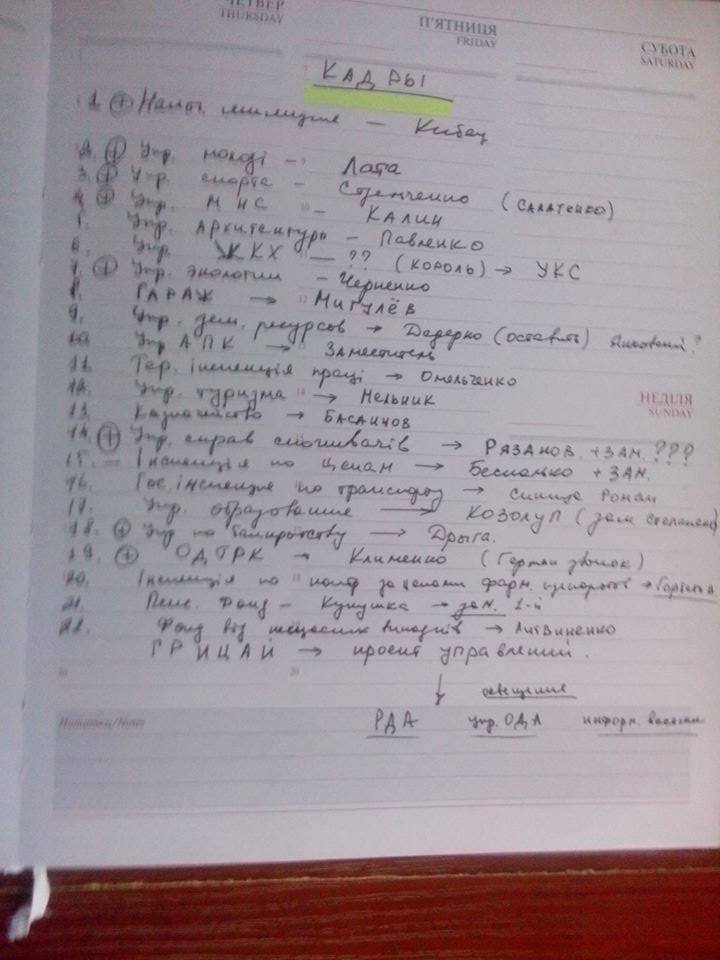 ЧЕТВЕР
THURSDAY
П'ЯТНИЦЯ
FRIDAY
СУБОТА
SATURDAY
КАДРЫ
1. ⊕ Нач. милиции — Кибец
2. ⊕ Упр. молоді – Лата
3. ⊕ Упр. спорта – Стенченко (САЛАТЕНКО)
4. ⊕ Упр. МНС – КАЛИН
5. Упр. Архитектуры – Павленко
6. Упр. ЖКХ — ?? (КОРОЛЬ) → УКС
7. ⊕ Упр. экологии – Черненко
8. ГАРАЖ → МИГУЛЁВ
9. Упр. зем. ресурсов → Дадерко (оставить) ?
10. Упр АПК → Заместитель
11. Тер. інспекція праці → Омельченко
НЕДІЛЯ
SUNDAY
12. Упр. туризма → Мельник
13. Казначейство → БАСАНЦОВ
14. ⊕ Упр. справ споживачів → РЯЗАНОВ. + ЗАМ. ???
15. — Інспекція по ценам → Беспалько + ЗАМ.
16. Гос. інспекция по транспорту → синица Роман
17. Упр. образование → КОЗОЛУП (зам степаненко)
18. ⊕ Упр по → Дрыга.
19. ⊕ ОДТРК – Клименко (Герман звонок)
20. Інспекція по контр за ценами фарм. →
21. Пенс. Фонд – Кукушка → зам. 1-й
22. Фонд від нещасних випадків → Литвиненко
ГРИЦАЙ → просит управлений.
↓ освещение
Нотатки/Notes
РДА упр. ОДА информ.